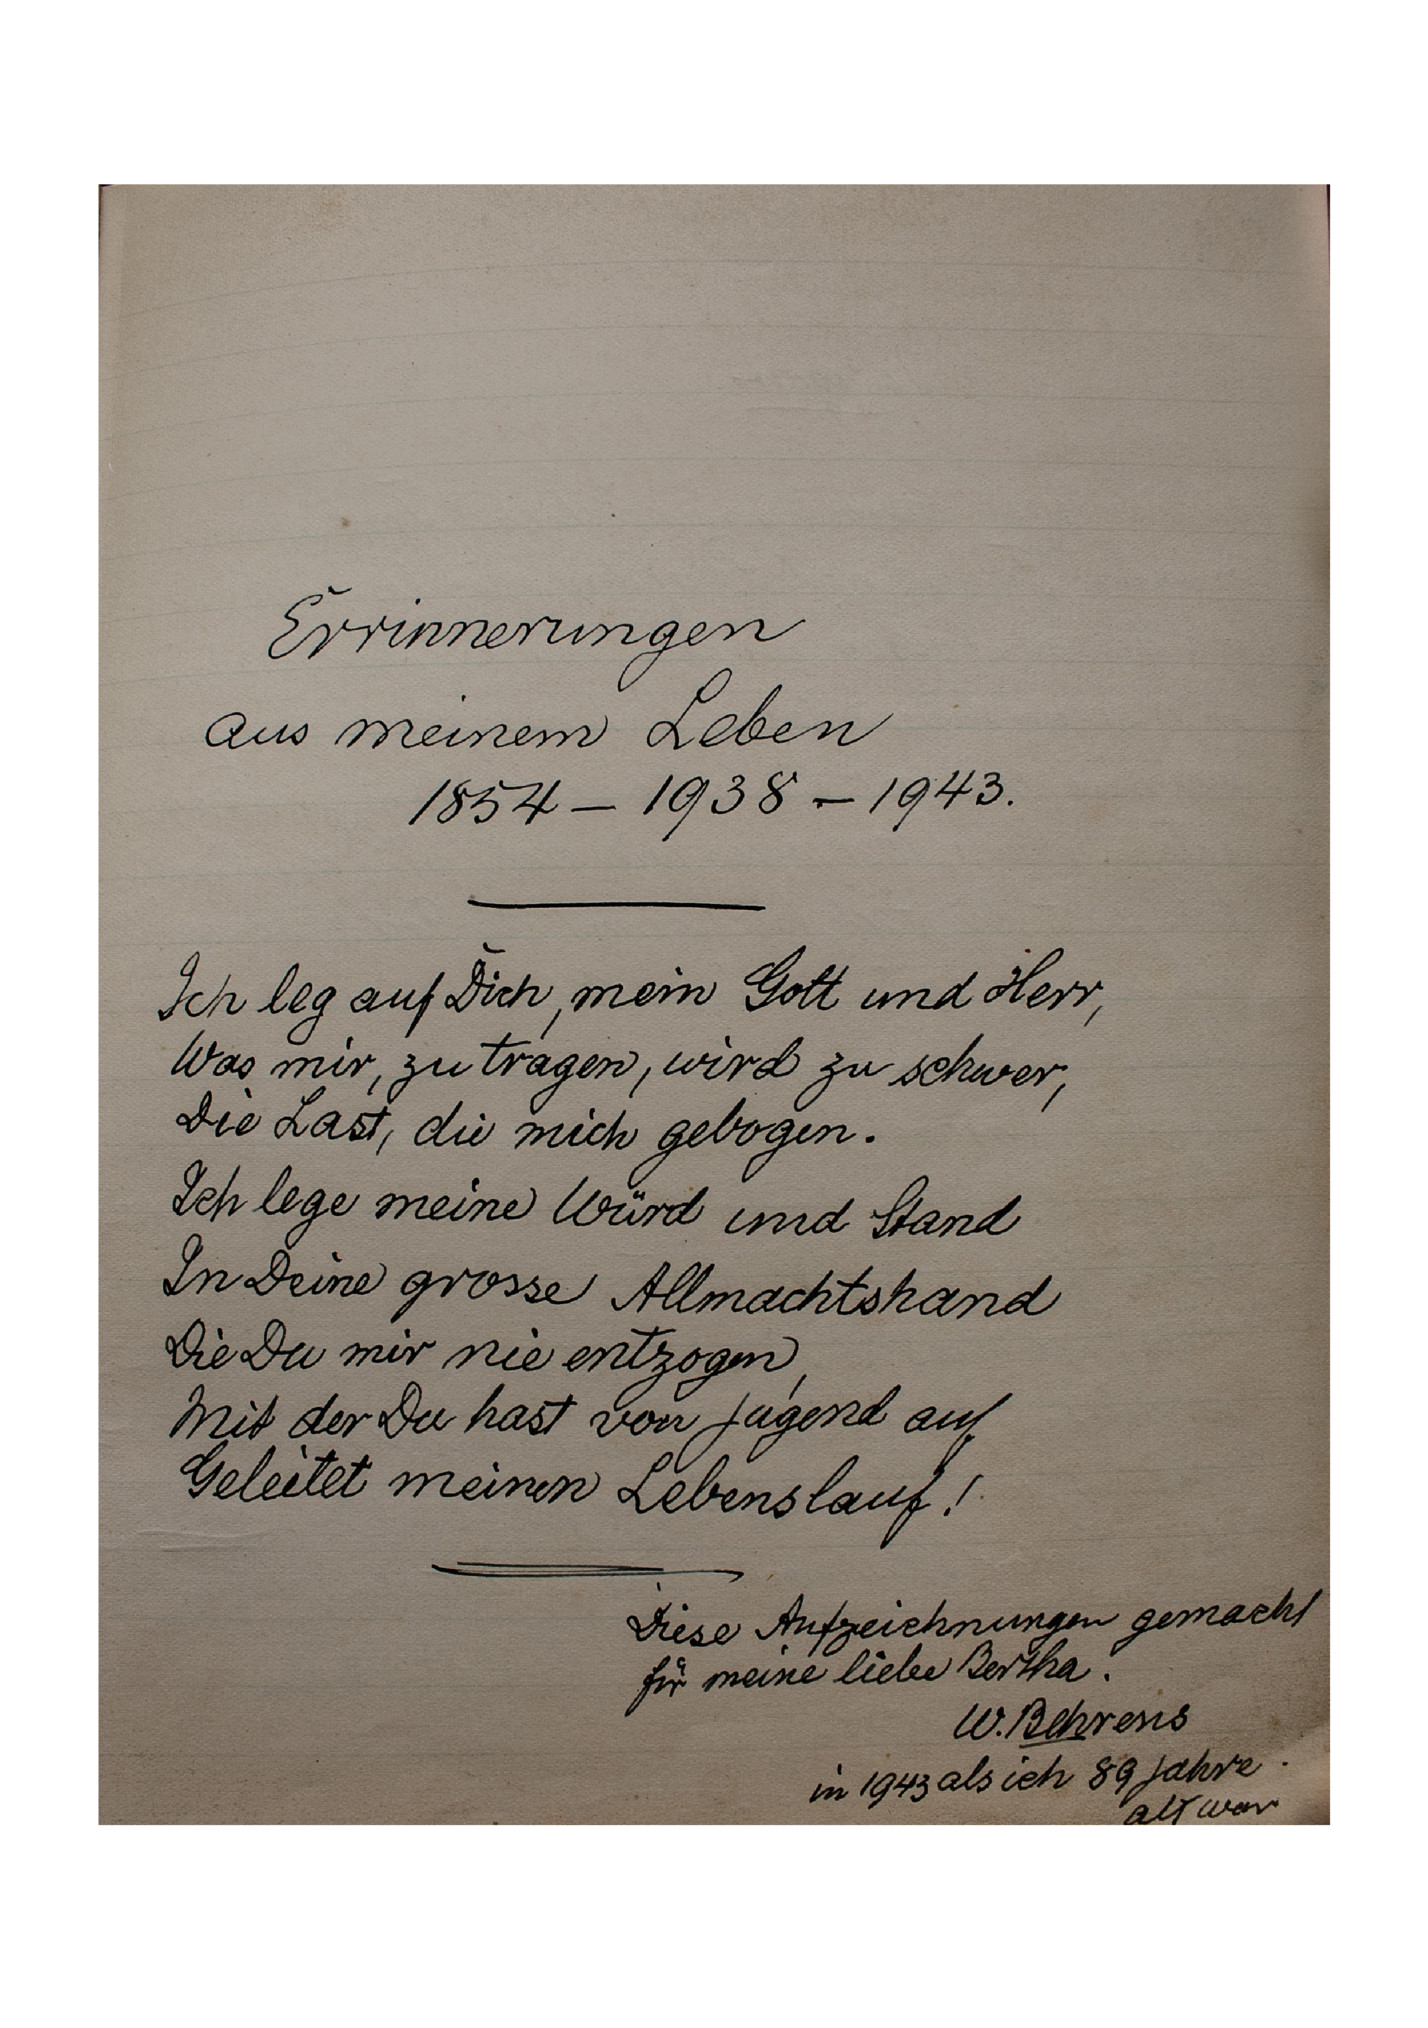 Errinnerungen
aus meinem Leben
1854 – 1938 – 1943.
Ich leg auf Dich, mein Gott und Herr,
Was mir, zu tragen, wird zu schwer,
Die Last, die mich gebogen.
Ich lege meine Würd und Stand
In Deine grosse Allmachtshand
Die Du mir nie entzogen,
Mit der Du hast von Jugend auf
Geleitet meinen Lebenslauf!
Diese Aufzeichnungen gemacht
für meine liebe Bertha.
W. Behrens
in 1943 als ich 89 Jahre
alt war